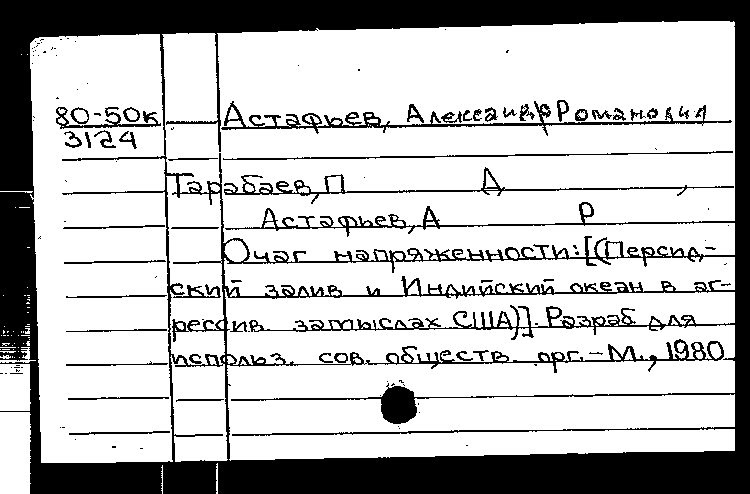 80-50к Астафьев, Александр Романович
3124
Тарабаев, П Д ,
Астафьев, А Р
Очаг напряженности: [(Персид-
ский залив и Индийский океан в аг-
рессив. замыслах США)]. Разраб для
использ. сов. обществ. орг. - М., 1980